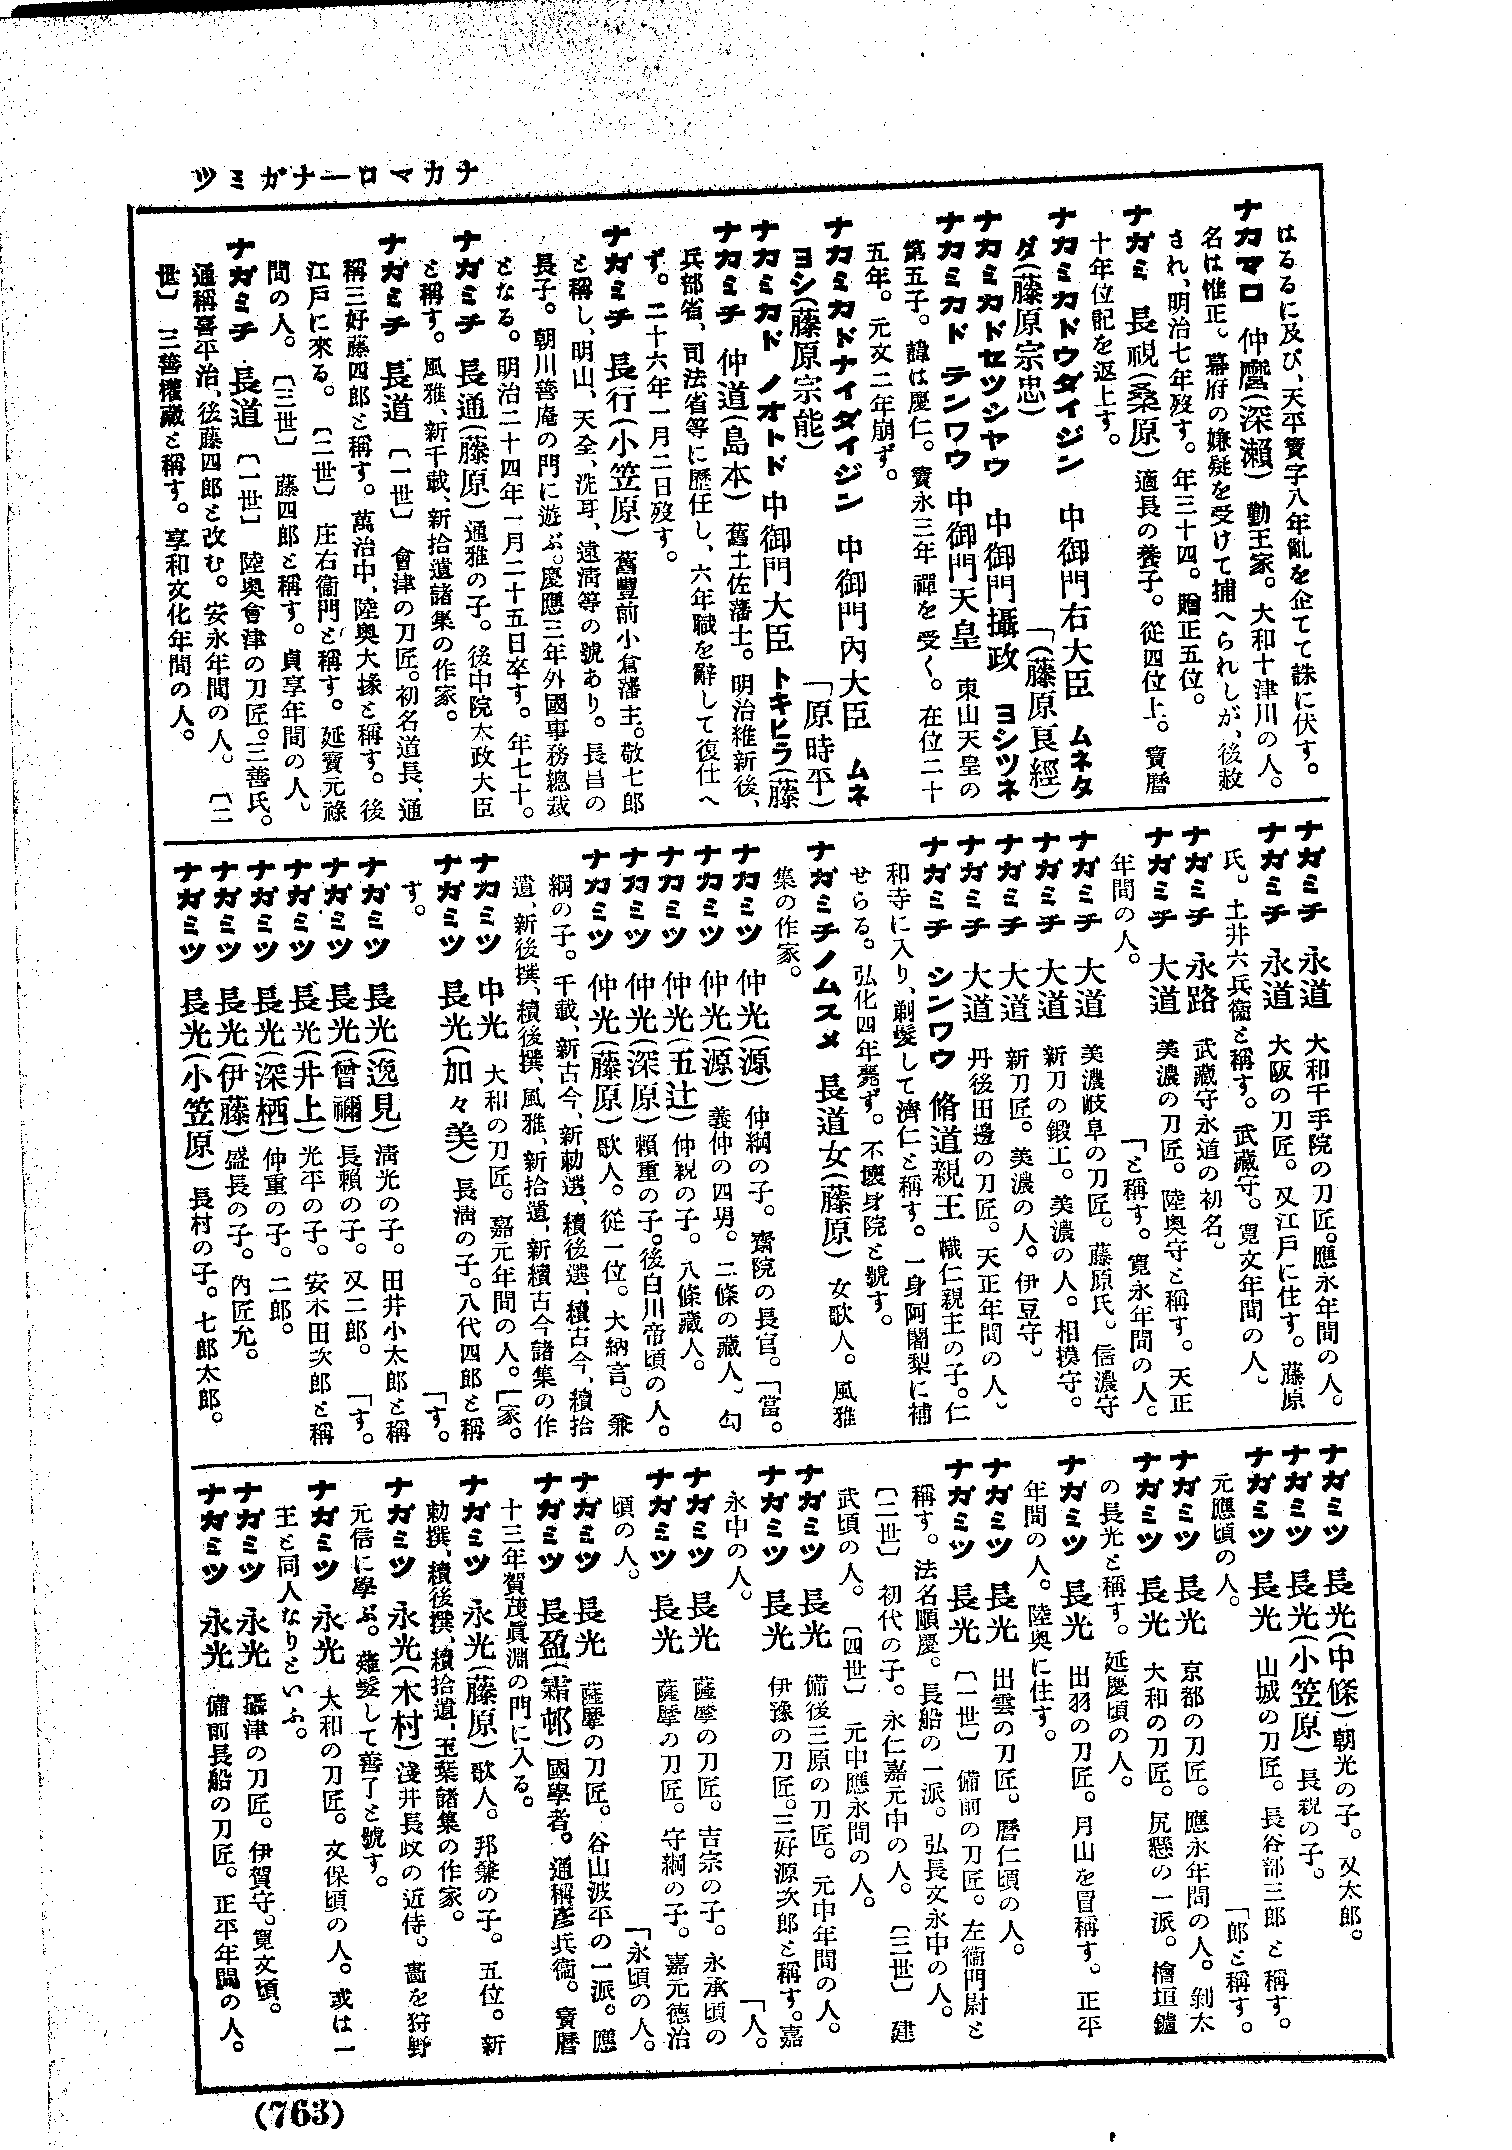 ナカマロ―ナガミツ
はるるに及び、天平寶字八年亂を企てて誅に伏す。
ナカマロ 仲麿(深瀨) 勤王家。大和十津川の人。
名は惟正。幕府の嫌疑を受けて捕へられしが、後赦
され、明治七年歿す。年三十四。贈正五位。
ナガミ 長視(桑原) 適長の養子。從四位上。寶曆
十年位記を返上す。
ナカミカドウダイジン 中御門右大臣 ムネタ
ダ(藤原宗忠) 「(藤原良經)
ナカミカドセツシヤウ 中御門攝政 ヨシツネ
ナカミカド テンワウ 中御門天皇 東山天皇の
第五子。諱は慶仁。寶永三年禪を受く。在位二十
五年。元文二年崩ず。
ナカミカドナイダイジン 中御門內大臣 ムネ
ヨシ(藤原宗能) 「原時平)
ナカミカド ノオトド 中御門大臣 トキヒラ(藤
ナカミチ 仲道(島本) 舊土佐藩士。明治維新後、
兵部省、司法省等に歷任し、六年職を辭して復仕へ
ず。二十六年一月二日歿す。
ナガミチ 長行(小笠原) 舊豐前小倉藩主。敬七郎
と稱し、明山、天全、洗耳、遠淸等の號あり。長昌の
長子。朝川善庵の門に遊ぶ。慶應三年外國事務總裁
となる。明治二十四年一月二十五日卒す。年七十。
ナガミチ 長通(藤原) 通雅の子。後中院太政大臣
と稱す。風雅、新千載、新拾遺諸集の作家。
ナガミチ 長道 〔一世〕 會津の刀匠。初名道長、通
稱三好藤四郎と稱す。萬治中、陸奧大掾と稱す。後
江戶に來る。 〔二世〕 庄右衞門と稱す。延寶元祿
間の人。 〔三世〕 藤四郎と稱す。貞享年間の人。
ナガミチ 長道 〔一世〕 陸奧會津の刀匠。三善氏。
通稱喜平治、後藤四郎と改む。安永年間の人。 〔二
世〕 三善權藏と稱す。享和文化年間の人。
ナガミチ 永道 大和千手院の刀匠。應永年間の人。
ナガミチ 永道 大阪の刀匠。又江戶に住す。藤原
氏。土井六兵衞と稱す。武藏守。寬文年間の人。
ナガミチ 永路 武藏守永道の初名。
ナガミチ 大道 美濃の刀匠。陸奧守と稱す。天正
年間の人。 「と稱す。寬永年間の人。
ナガミチ 大道 美濃岐阜の刀匠。藤原氏。信濃守
ナガミチ 大道 新刀の鍛工。美濃の人。相摸守。
ナガミチ 大道 新刀匠。美濃の人。伊豆守。
ナガミチ 大道 丹後田邊の刀匠。天正年間の人。
ナガミチ シンワウ 脩道親王 幟仁親王の子。仁
和寺に入り、剃髮して濟仁と稱す。一身阿闍梨に補
せらる。弘化四年薨ず。不壞身院と號す。
ナガミチノムスメ 長道女(藤原) 女歌人。風雅
集の作家。
ナカミツ 仲光(源) 仲綱の子。齋院の長官。「當。
ナカミツ 仲光(源) 義仲の四男。二條の藏人、勾
ナカミツ 仲光(五辻) 仲親の子。八條藏人。
ナカミツ 仲光(深原) 賴重の子。後白川帝頃の人。
ナカミツ 仲光(藤原) 歌人。從一位。大納言。兼
綱の子。千載、新古今、新勅選、續後選、續古今、續拾
遺、新後撰、續後撰、風雅、新拾遺、新續古今諸集の作
ナカミツ 中光 大和の刀匠。嘉元年間の人。「家。
ナガミツ 長光(加々美) 長淸の子。八代四郎と稱
す。 「す。
ナガミツ 長光(逸見) 淸光の子。田井小太郎と稱
ナガミツ 長光(曾禰) 長賴の子。又二郎。 「す。
ナガミツ 長光(井上) 光平の子。安木田次郎と稱
ナガミツ 長光(深栖) 仲重の子。二郎。
ナガミツ 長光(伊藤) 盛長の子。內匠允。
ナガミツ 長光(小笠原) 長村の子。七郎太郎。
ナガミツ 長光(中條) 朝光の子。又太郎。
ナガミツ 長光(小笠原) 長親の子。
ナガミツ 長光 山城の刀匠。長谷部三郎と稱す。
元應頃の人。 「郎と稱す。
ナガミツ 長光 京都の刀匠。應永年間の人。剝太
ナガミツ 長光 大和の刀匠。尻懸の一派。檜垣鑪
の長光と稱す。延慶頃の人。
ナガミツ 長光 出羽の刀匠。月山を冒稱す。正平
年間の人。陸奧に住す。
ナガミツ 長光 出雲の刀匠。曆仁頃の人。
ナガミツ 長光 〔一世〕 備前の刀匠。左衞門尉と
稱す。法名順慶。長船の一派。弘長文永中の人。
〔二世〕 初代の子。永仁嘉元中の人。 〔三世〕 建
武頃の人。 〔四世〕 元中應永間の人。
ナガミツ 長光 備後三原の刀匠。元中年間の人。
ナガミツ 長光 伊豫の刀匠。三好源次郎と稱す。嘉
永中の人。 「人。
ナガミツ 長光 薩摩の刀匠。吉宗の子。永承頃の
ナガミツ 長光 薩摩の刀匠。守綱の子。嘉元德治
頃の人。 「永頃の人。
ナガミツ 長光 薩摩の刀匠。谷山波平の一派。應
ナガミツ 長盈(霜邨) 國學者。通稱彥兵衞。寶曆
十三年賀茂眞淵の門に入る。
ナガミツ 永光(藤原) 歌人。邦兼の子。五位。新
勅撰、續後撰、續拾遺、玉葉諸集の作家。
ナガミツ 永光(木村) 淺井長政の近侍。畫を狩野
元信に學ぶ。薙髮して善了と號す。
ナガミツ 永光 大和の刀匠。文保頃の人。或は一
王と同人なりといふ。
ナガミツ 永光 攝津の刀匠。伊賀守。寬文頃。
ナガミツ 永光 備前長船の刀匠。正平年間の人。
(763)